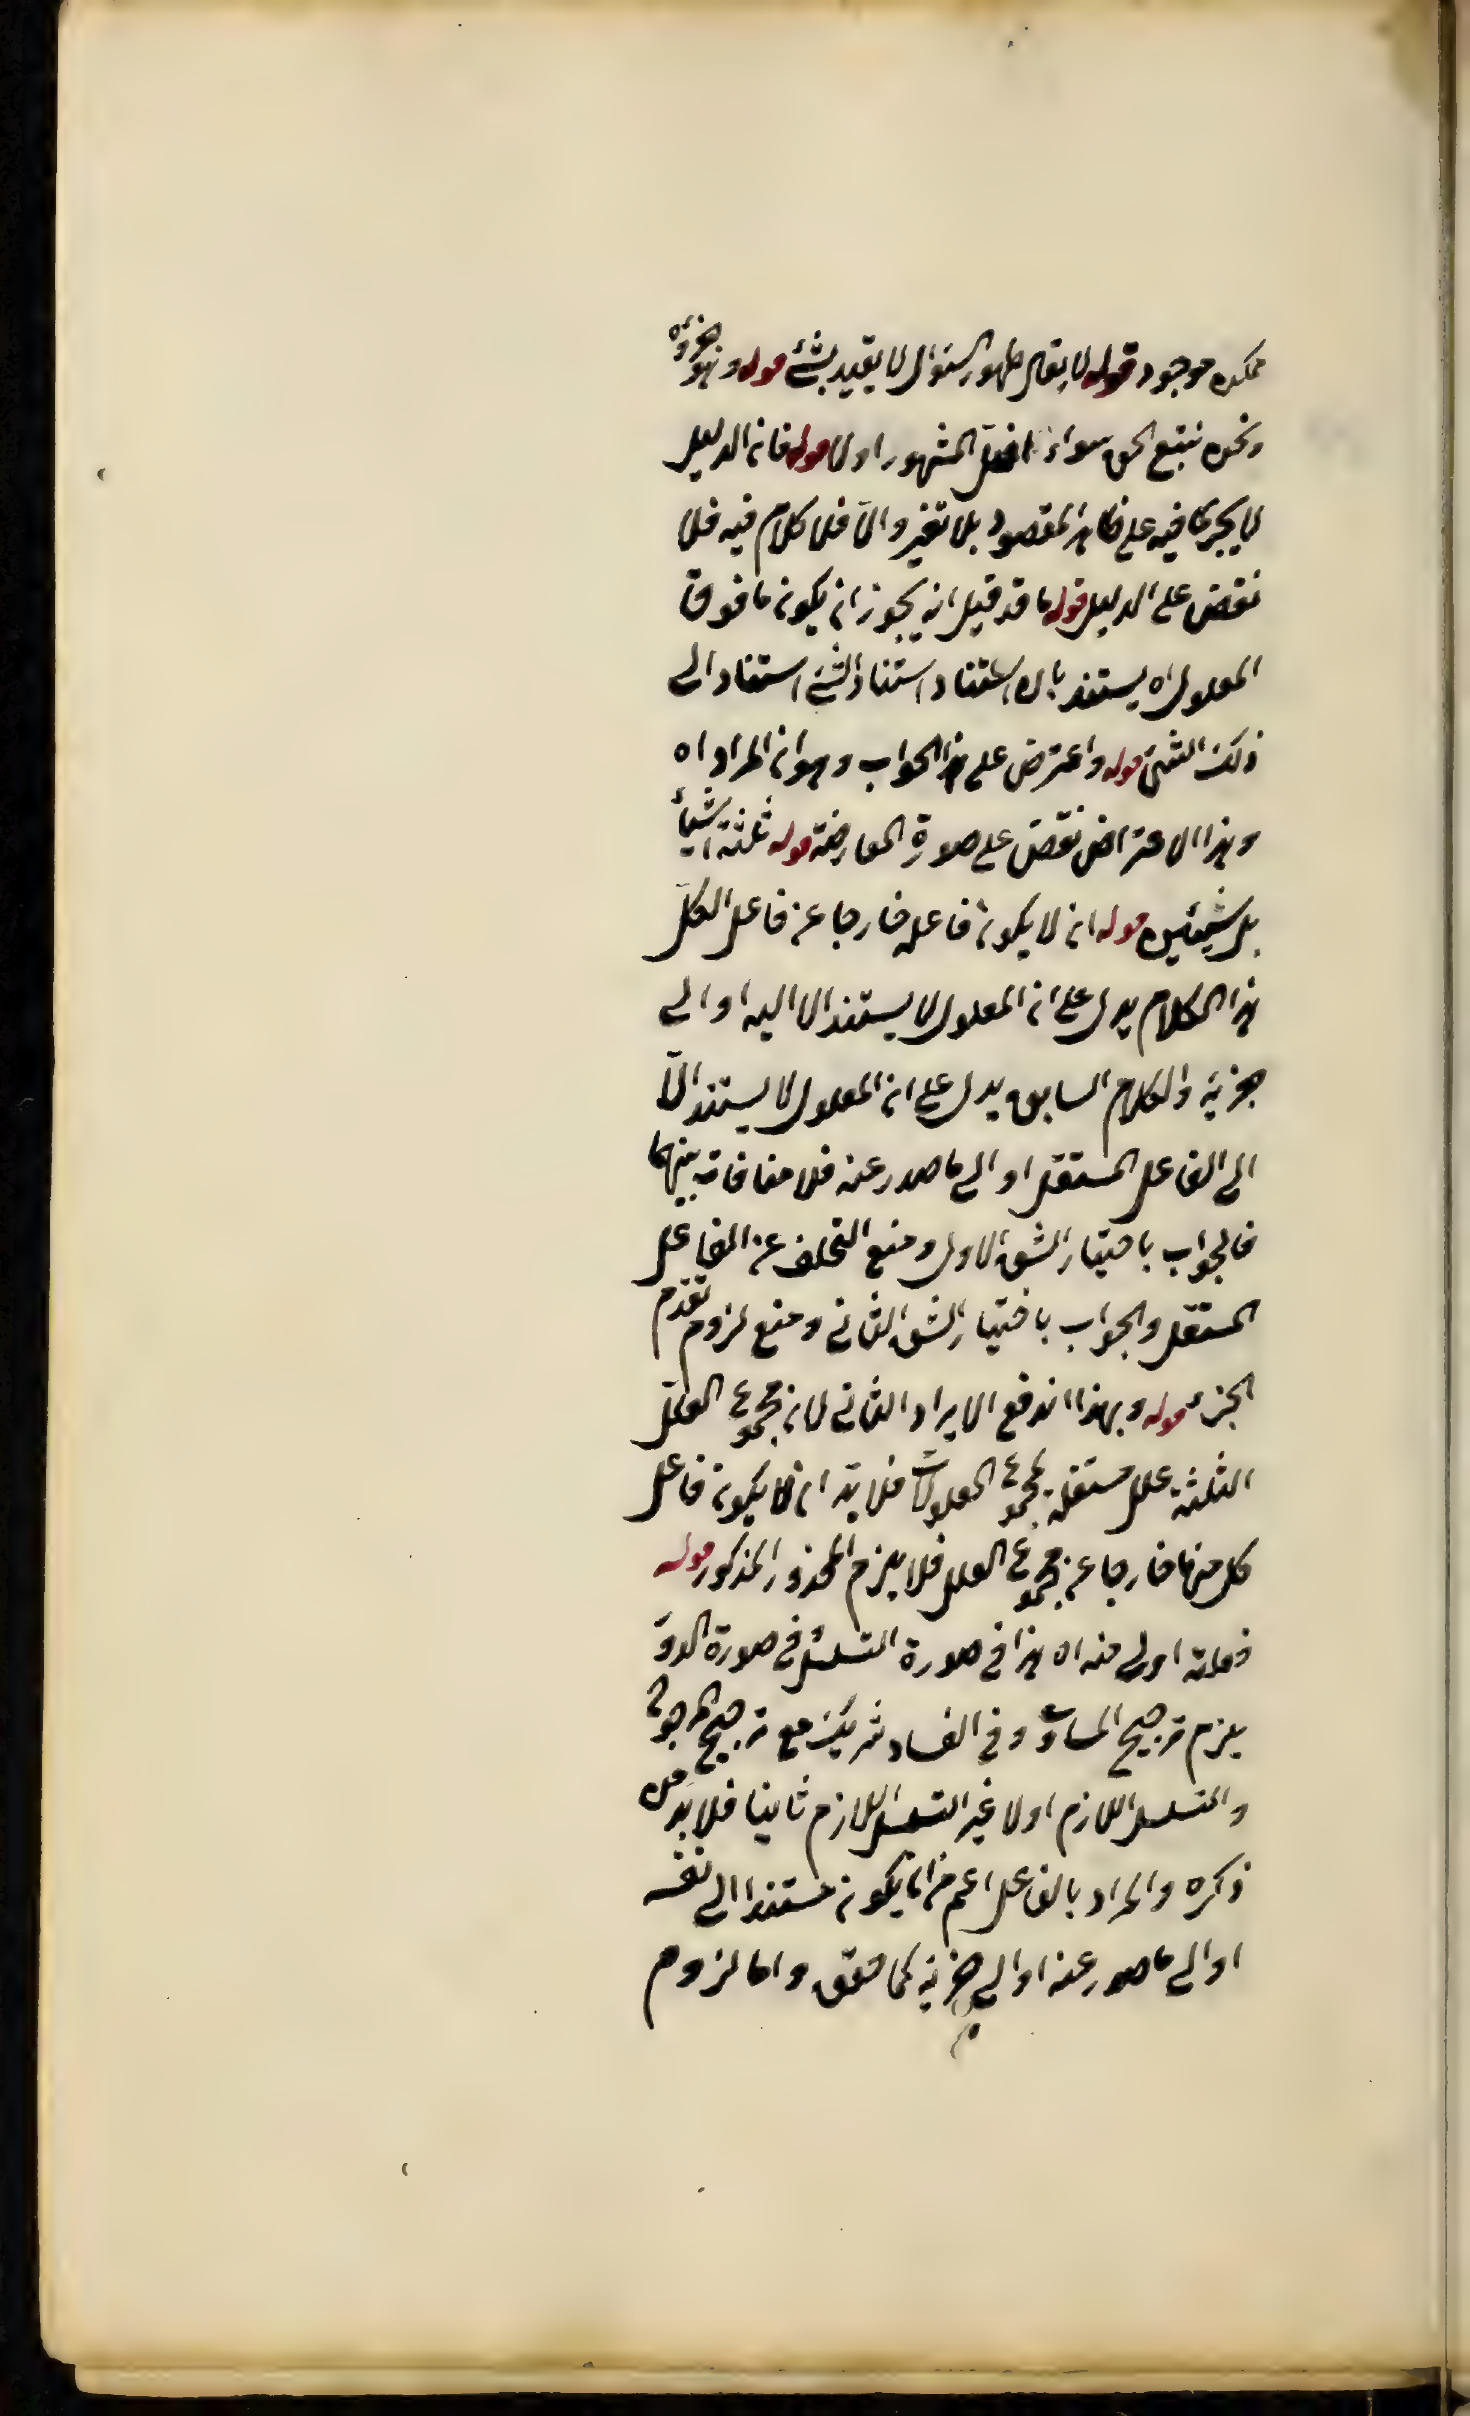 ممكن موجود قوله لا يقال ظهور السئوال لا يقيد بشئ قوله وهو جزؤه
ونحن نتبع الحق سواء اختل المشهور اولا قوله فان الدليل
لا يجرى فيه على المقصود بلا تغير والا فلا كلام فيه فلا
نقض على الدليل قوله ما قد قيل انه يجوز ان يكون ما فوق
المعلول اه يستند بان استناد استناد الشئ استناد الى
ذلك الشئ قوله واعترض على هذا الجواب وهو ان المراد اه
وهذا الاعتراض نقض على صورة المعارضة قوله ثلثة اشياء
بل شيئين قوله ان لا يكون فاعله خارجا عن فاعل الكل
هذا الكلام يدل على ان المعلول لا يستند الا اليه او الى
جزئه والكلام السابق يدل على ان المعلول لا يستند الا
الى الفاعل المستقل او الى ما صدر عنه فلا منافاة بينهما
فالجواب باختيار الشق الاول ومنع التخلف عن الفاعل
المستقل والجواب باختيار الشق الثانى ومنع لزوم تقدم
الجزء قوله وبهذا اندفع الايراد الثانى لان مجموع العلل
الثلثة علل مستقلة لمجموع المعلولات فلا بد ان لا يكون فاعل
كل منها خارجا عن مجموع العلل فلا يلزم المحذور المذكور قوله
فعلته اولى منه اه هذا فى صورة التسلسل وفى صورة الدور
يلزم ترجيح المساوى وفى الفساد شريك مع ترجيح المرجوح
والتسلسل اللازم اولا غير التسلسل اللازم ثانيا فلا بد من
ذكره والمراد بالفاعل اعم من ان يكون مستندا الى نفسه
او الى ما صدر عنه او الى جزئه كما حقق واما لزوم